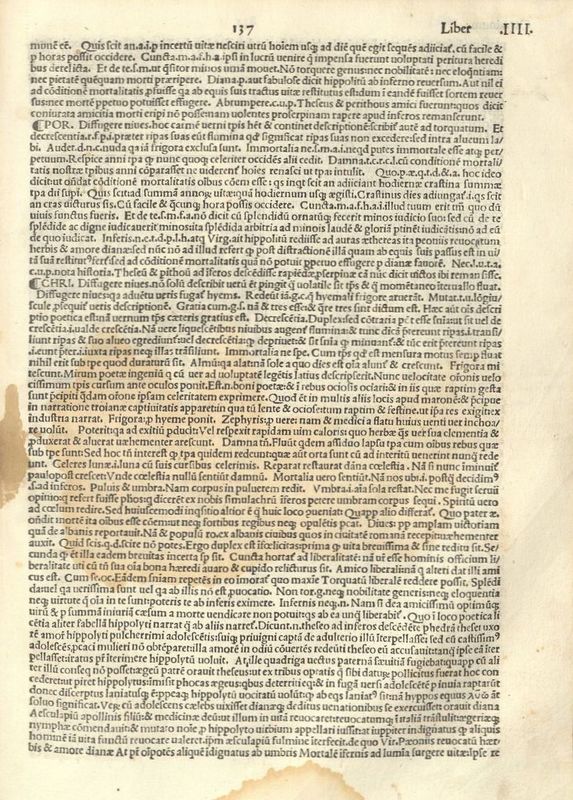 137 Liber .IIII.
mune eē. Quis scit an.a.i.p incertū uitæ nesciti utrū hoiem usq; ad diē quē egit sequēs adiiciat. cū facile &
p horas possit occidere. Cuncta.m.a.f.h.a ipsi in lucrū uenire q impensa fuerunt uoluptati peritura heredi
bus derelicta. Et de te.s.m.ut q̄sitor minos urna mouet. Nō torquere genus: nec nobilitatē: nec eloq̄ntiam:
nec pietatē quēquam morti præripere. Diana.p.aut fabulose dicit hippolitū ab inferno reuersum. Aut nl ei
ad cōditionē mortalitatis
sus: nec mortē ppetuo potuisset effugere. Abrumpere.c.u.p. Theseus & perithous amici fuerunt: quos dicit
coniurata amicitia morti eripi nō possemam uolentes proserpinam rapere apud inferos remanserunt.
¶POR. Diffugere niues. hoc carmē uerni tpis hēt & continet descriptionē: scribit autē ad torquatum. Et
decrescentia.r.f.p.i. præter ripas suas eūt flumina qd significat ripas suas non excedere: sed intra alueum la/
bi. Audet.d.n.c.nuda qa iā frigora exclusa sunt. Immortalia ne.s.m.a.i. neqd putes immortale esse atq; per/
petuum. Respice anni tpa qp nunc quoq; celeriter occidēs alii cedit. Damna.t.c.r.c.l. cū conditionē mortali/
tatis nostræ tpibus anni cōparasset ne uiderent hoies renasci ut tpa: intulit. Quo.p.æ.q.t.d.&.a. hoc ideo
dicit: ut ōndat cōditionē mortalitatis oibus cōem esse
tpa dii supi. Quis scit: ad summā annoq; uitæq; nā hodiernum usq; ægisti. Crastinus dies adiungat.i.qs scit
an cras uicturus sis. Cū facile & q̄cunq; hora possis occidere. Cuncta.m.a.f.h.a.i. illud tuum erit tm̄ quo dū
uiuis functus fueris. Et de te.s.m.f.a. nō dicit cū splendidū ornatūq; fecerit minos iudicio suo: sed cū de te
splēdide ac digne iudicauerit minos: uita splēdida arbitria ad minois laudē & gloriā ptinēt iudicātis: nō ad eū
de quo iudicat. Infernis.n.c.t.d.p.l.h. atq; Virg. ait hippolitū rediisse ad auras æthereas ita peoniis reuocatum
herbis & amore dianæ
tā suā restitut9
c.u.p. nota historia. Theseū & pithoū ad inferos descēdisse rapiēdæ
¶CHRI. Diffugere niues. nō solū describit uerū ēt pingit
Diffugere niues: qa aduētu ueris fugat hyems. Redeūt iā.g.c. qa hyemali frigore aruerāt. Mutat.t.u. lōgiu/
scule psequit ueris descriptionē. Gratia cum.g.s. nā & tres esse & qre tres sint dictum est. Hæc aūt ois descri
ptio poetica est: nā uernum tps cæteris gratius est. Decrescētia. Duplex sed cōtraria
crescētia.i. ualde crescētia. Nā uere liquescētibus niuibus augent flumina: & tunc dicā ptereunt ripas.i. transi/
liunt ripas & suo alueo egrediunt: uel decrescētia:
.i. eunt pter.i. iuxta ripas neq; illas trāsiliunt. Immortalia ne spe. Cum tps qd est mensura motus semp fluat
nihil erit sub tpe quod duraturū sit. Almūq; alatā nō sole a quo dies est oīa alunt & crescunt. Frigora mi
tescunt. Mirum poetæ ingeniū q cū uer ad uoluptatē legētis latius descripserit. Nunc uelocitate orōnis uelo
cissimum tpis cursum ante oculos ponit. Est.n. boni poetæ: & ī rebus ociosis ociari: & in iis quæ raptim gesta
sunt pcipiti qdam orōne ipsam celeritatem exprimere. Quod ēt in multis aliis locis apud maronē: & pcipue
in narratione troianæ captiuitatis apparet: in qua tū lente & ociose: tū raptim & festine. ut ipa res exigit: ex
industria narrat. Frigora.p hyeme ponit. Zephyris.p uere: nam & medicina flatu huius uenti uer inchoa/
re uolūt. Poterit: qa ad exitiū pducit: Vel respexit rapidam uim caloris: quo herbæ qs uer sua clementia &
pduxerat & aluerat uæhementer arescunt. Damna tn̄. Fluūt qdem assiduo lapsu tpa cum oibus rebus quæ
sub tpe sunt: Sed hoc tn̄ interest
unt. Celeres lunæ.i. luna cū suis cursibus celerimis. Reparat restaurat dāna cœlestia. Nā si nunc iminuit
paulopost crescet: Vnde cœlestia nullū sentiūt damnū. Mortalia uero sentiūt. Nā nos ubi.i. postq; decidim9
.i. ad inferos. Puluis & umbra. Nam corpus in puluerem redit. Vmbra.i. aīa sola restat. Nec me fugit seruii
opinio: q refert fuisse phos: q dicerēt ex nobis simulachrū iferos petere umbram corpus sequi. Spiritū uero
ad cœlum redire. Sed huiuscemodi inqsitio altior ē q huic loco
ōndit morte ita oibus esse cōem: ut neq; fortibus regibus neq; opulētis pcat. Diues: pp amplam uictoriam
quā de albanis reportauit. Nā & populū ro. ex albanis ciuibus quos in ciuitatē romanā recepit: uæhementer
auxit. Quid scis. q.d. scire nō potes. Ergo duplex est ifœlicitas: prima q uita breuissima & sine reditu sit. Se/
cunda q ēt illa eadem breuitas incerta sp sit. Cuncta hortat ad liberalitatē: nā ut esse hominis officium li/
beralitate uti: cū tn̄ sua oīa bona hæredi auaro & cupido relicturus sit. Amico liberali: nā q alteri dat illi ami
cus est. Cum se.oc. Eādem sniam repetēs in eo imorat quo maxie Torquatū liberalē reddere possit. Splēdi
da: uel qa uerissima sunt uel qa ab illis nō est puocatio. Non tor.g. neq; nobilitate generis: neq; eloquentia
neq; uirtute q oīa in te sunt: poteris te ab inferis eximere. Infernis neq;.n. Nam si dea amicissimū optimūq;
uirū & p summā iniuriā cæsum a morte uendicare non potuit: qs ab ea unq; liberabit. Quo ī loco poetica li
cētia aliter fabellā hippolyti narrat q ab aliis narret. Dicunt.n. theseo ad inferos descēdēte phedrā thesei uxo
rē amoř hippolyti pulcherrimi adolescētis: suiq; priuigni captā de adulterio illū iterpellasse: sed cū castissim9
adolescēs pcaci mulieri nō obtēparet: illa amore in odiū cōuertēs redeūti theseo eū accusauit: tanq; ipse eā iter
pellasset: iratus pr iterimere hippolytū uoluit. At ille quadriga uectus paternā sæuitiā fugiebat: quapp cū ali
ter illū conseq nō posset: ægeū patrē orauit theseus: ut ex tribus optatis q sibi datus pollicitus fuerat hoc con
cederet: ut piret hippolytus: imisit phocas ægeus: qbus deterriti eq: & in fugā uersi adolescētē p inuia raptarūt
donec discerptus laniatusq;
soluo significat. Vez cū adolescens cælebs uixisset dianæq; deditus uenationibus se exercuisset: orauit diana
Aesculapiū apollinis filiū: & medicinæ deū: ut illum in uitā reuocaret: reuocatumq; ī italiā trāstulit: ægeriæq;
nymphæ cōmendauit: & mutato noīe p hippolyto uirbium appellari iussit: at iuppiter indignatus q aliquis
homnē iā uita functū reuocare ualeret. ipm æsculapiū fulmine iterfecit. de quo Vir. Pæoniis reuocatū hær/
bis & amore dianæ At pr oīpotēs aliquē idignatus ab umbris Mortalē ifernis ad lumia surgere uitæ: Ipse re